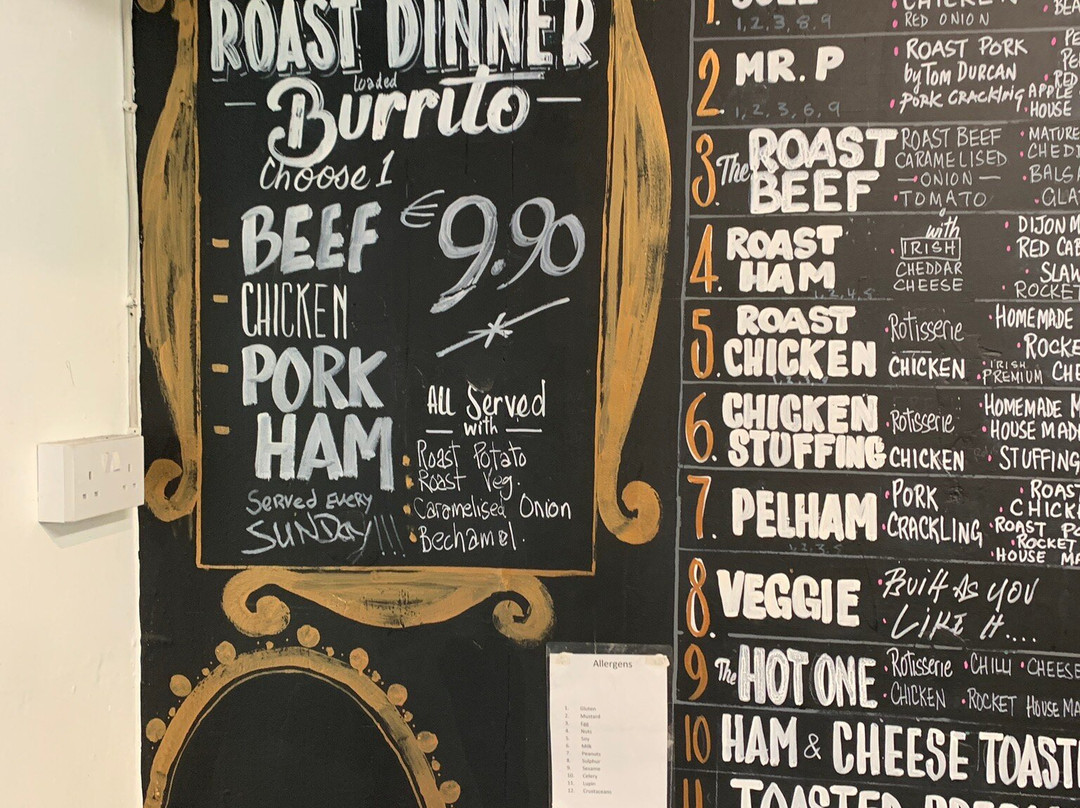 ROAST DINNER
loaded
Burrito
Choose 1
€9.90
- BEEF
- CHICKEN
- PORK
- HAM
All Served
with
Roast Potato
Roast Veg.
Caramelised Onion
Bechamel.
Served Every
SUNDAY!!!
Allergens
1. Gluten
2. Mustard
3. Egg
4. Nuts
5. Soy
6. Milk
7. Peanuts
8. Sulphur
9. Sesame
10. Celery
11. Lupin
12. Crustaceans
1.
1, 2, 3, 8, 9
CHICKEN
RED ONION
2. MR. P
1, 2, 3, 6, 9
ROAST PORK
by Tom Durcan
PORK CRACKLING
RED
APPLE
HOUSE
3. The ROAST BEEF
ROAST BEEF
CARAMELISED
ONION
TOMATO
MATURE
CHED
BALSA
GLA
4. ROAST
HAM
with
IRISH
CHEDDAR
CHEESE
DIJON M
RED CAB
SLAW
ROCKET
5. ROAST
CHICKEN
Rotisserie
CHICKEN
HOMEMADE
ROCKE
IRISH
PREMIUM CHE
6. CHICKEN
STUFFING
Rotisserie
CHICKEN
HOMEMADE M
HOUSE MAD
STUFFING
7. PELHAM
PORK
CRACKLING
ROAST
CHICK
ROAST PO
ROCKET
HOUSE MA
8. VEGGIE
BUILT AS YOU
LIKE IT....
9 The HOT ONE
Rotisserie CHILLI CHEESE
CHICKEN ROCKET HOUSE MA
10 HAM & CHEESE TOAST
11 TOASTED